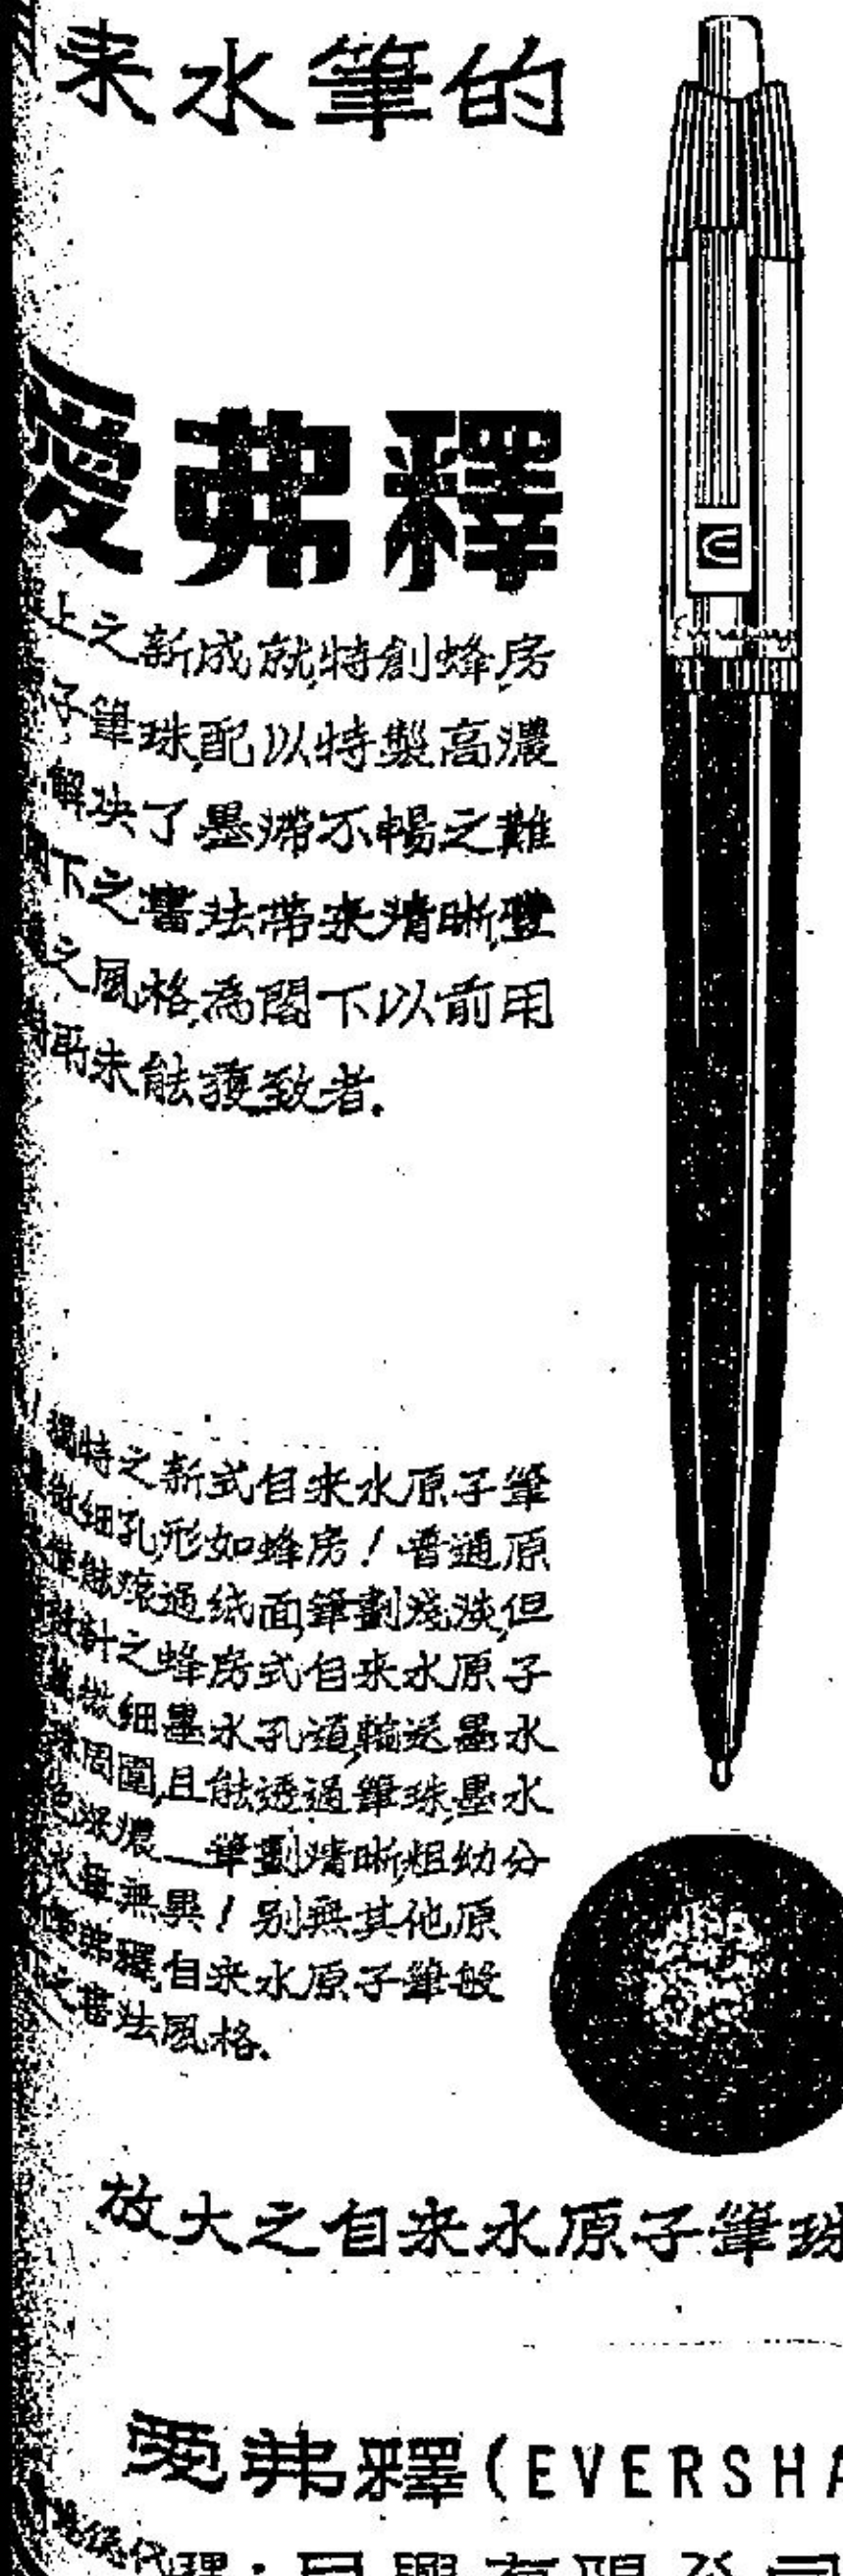 来水筆的
愛弗釋
上之新成就,特創蜂房
子筆珠,配以特製高濃
解决了墨滯不暢之難
下之書法帶来清晰,豐
之風格,為閣下以前用
所未能獲致者.
獨特之新式自来水原子筆
微細孔形如蜂房!普通原
能滚過紙面,筆劃淺淡,但
設計之蜂房式自来水原子
微細墨水孔道,輸送墨水
珠周圍,且能透過筆珠,墨水
色深濃—筆劃清晰,粗幼分
水筆無異!別無其他原
愛弗釋自来水原子筆般
之書法風格.
放大之自来水原子筆珠
愛弗釋(EVERSHA
代理:日興有限公司